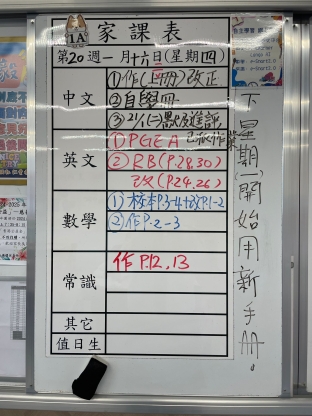 1A 家課表
第20週一月十六日(星期四)
中文
①作(上冊)改正
②自學冊
③21/1(二)默書進評
英文
①PGE A 已派作業
②RB(P.28.30)
改(P.24.26)
數學
①校本P.3-4+改P.1-2
②作P.2-3
常識
作P.12,13
其它
值日生
下星期(一)開始用新手冊!